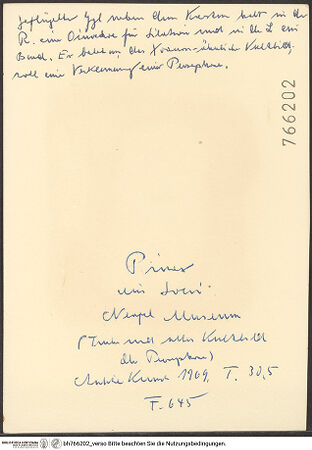 geflügelter Jgl neben dem Kasten hält in der
R. eine Oinochoe für Libation und in der L. ein
Band. Er
soll eine Verkleinerung einer Persephone.
766202
Pinax
aus Locri
Neapel Museum
(Truhe und altes Kultbild
der Persephone)
Antike Kunst 1969, T. 30,5
F. 645
bh766202_verso Bitte beachten Sie die Nutzungsbedingungen.